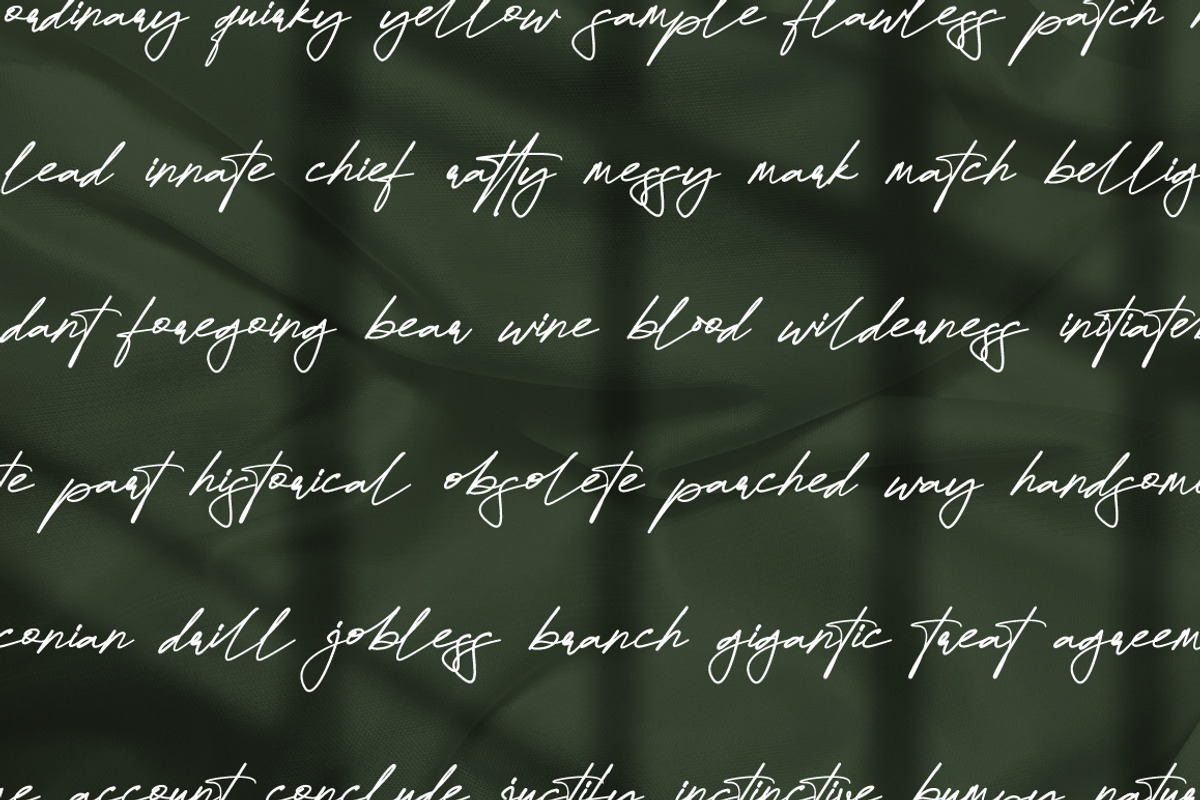 ordinary quirky yellow sample flawless patch
lead innate chief ratty messy mark match bellig
dant foregoing bear wine blood wilderness initiate
te part historical obsolete parched way handsome
conian drill jobless branch gigantic treat agreem
account conclude justify instinctive bumpy natur